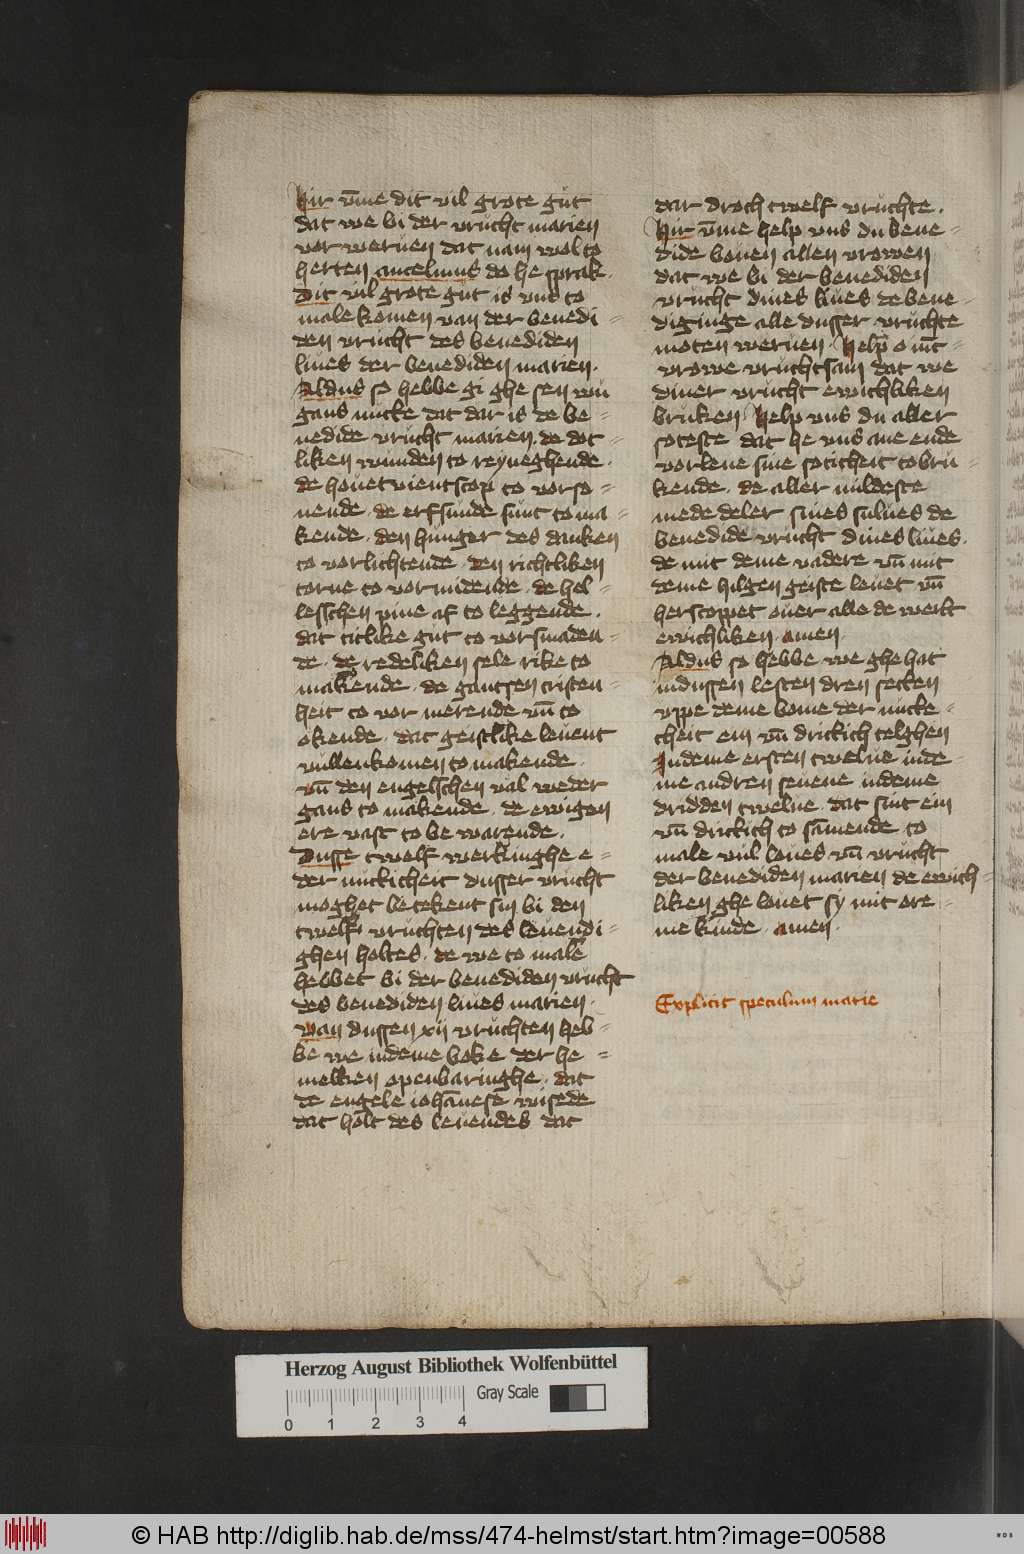 Hir v̄me dit vil grote gůt
dat we bi der vrucht marien
vor weruen dat nam wol to
herten ancelmus do he sprak.
Dit vil grote gůt is vns to
male komen van der benedi-
den vrucht des benediden
liues der benediden marien.
Aldus so hebbe gi ghe sen wu
gans nucke dat dar is de be-
nedide vrucht marien. de dot-
liken wunden to reyneghende.
de houet vientscop to vorso-
nende. de erfsunde sunt to ma-
kende. den hunger des danken
to vorlichtende. den richtliken
torne to vormidende. de hel-
lesschen pine af to leggende.
dat titlike gůt to vorsmaden-
de. de redeliken sele rike to
makende. de gantzen cristen-
heit to vor merende vn̄ to
okende. dat geistlike leuent
vullenkomen to makende.
vn̄ den engelschen val weder
gans to makende. de ewigen
ere vast to be warende.
Dusse twelf werkinghe e-
der nuckicheit dusser vrucht
moghet betekent sin bi den
twelf vruchten des leuendi-
ghen holtes. de we to male
hebbet bi der benediden vrucht
des benediden liues marien.
Van dussen xij vruchten heb-
be we indeme boke der he-
melken openbaringhe. dat
de engele ioh̄annese wisede
dat holt des leuendes dat
dar droch twelf vruchte.
Hir v̄me help vns du bene-
dide bouen allen vrowen
dat we bi der benediden
vrucht dines liues de bene-
diginge alle dusser vruchte
moten weruen. Help o iūc-
vrowe vruchtsam dat we
diner vrucht ewichliken
bruken. Help vns du aller
soteste dat he vns ane ende
vorlene sine soticheit to bru-
kende. de aller mildeste
mede deler sines sulues de
benedide vrucht dines liues.
de mit deme vadere vn̄ mit
deme hilgen geiste leuet vn̄
herscoppet ouer alle de werlt
ewichliken. amen.
Aldus so hebbe we ghe hat
indussen lesten dren secken
vppe deme bome der nucke-
cheit ein vn̄ druckich telghen
Indeme ersten twelue inde-
me andren seuene indeme
dridden twelue. dat sint ein
vn̄ druckich to sāmende to
male vul loues vn̄ vrucht
der benediden marien de ewich-
liken ghe louet sy mit ore-
me kinde. amen.
Explicit speculum marie
Herzog August Bibliothek Wolfenbüttel
Gray Scale
0 1 2 3 4
© HAB http://diglib.hab.de/mss/474-helmst/start.htm?image=00588